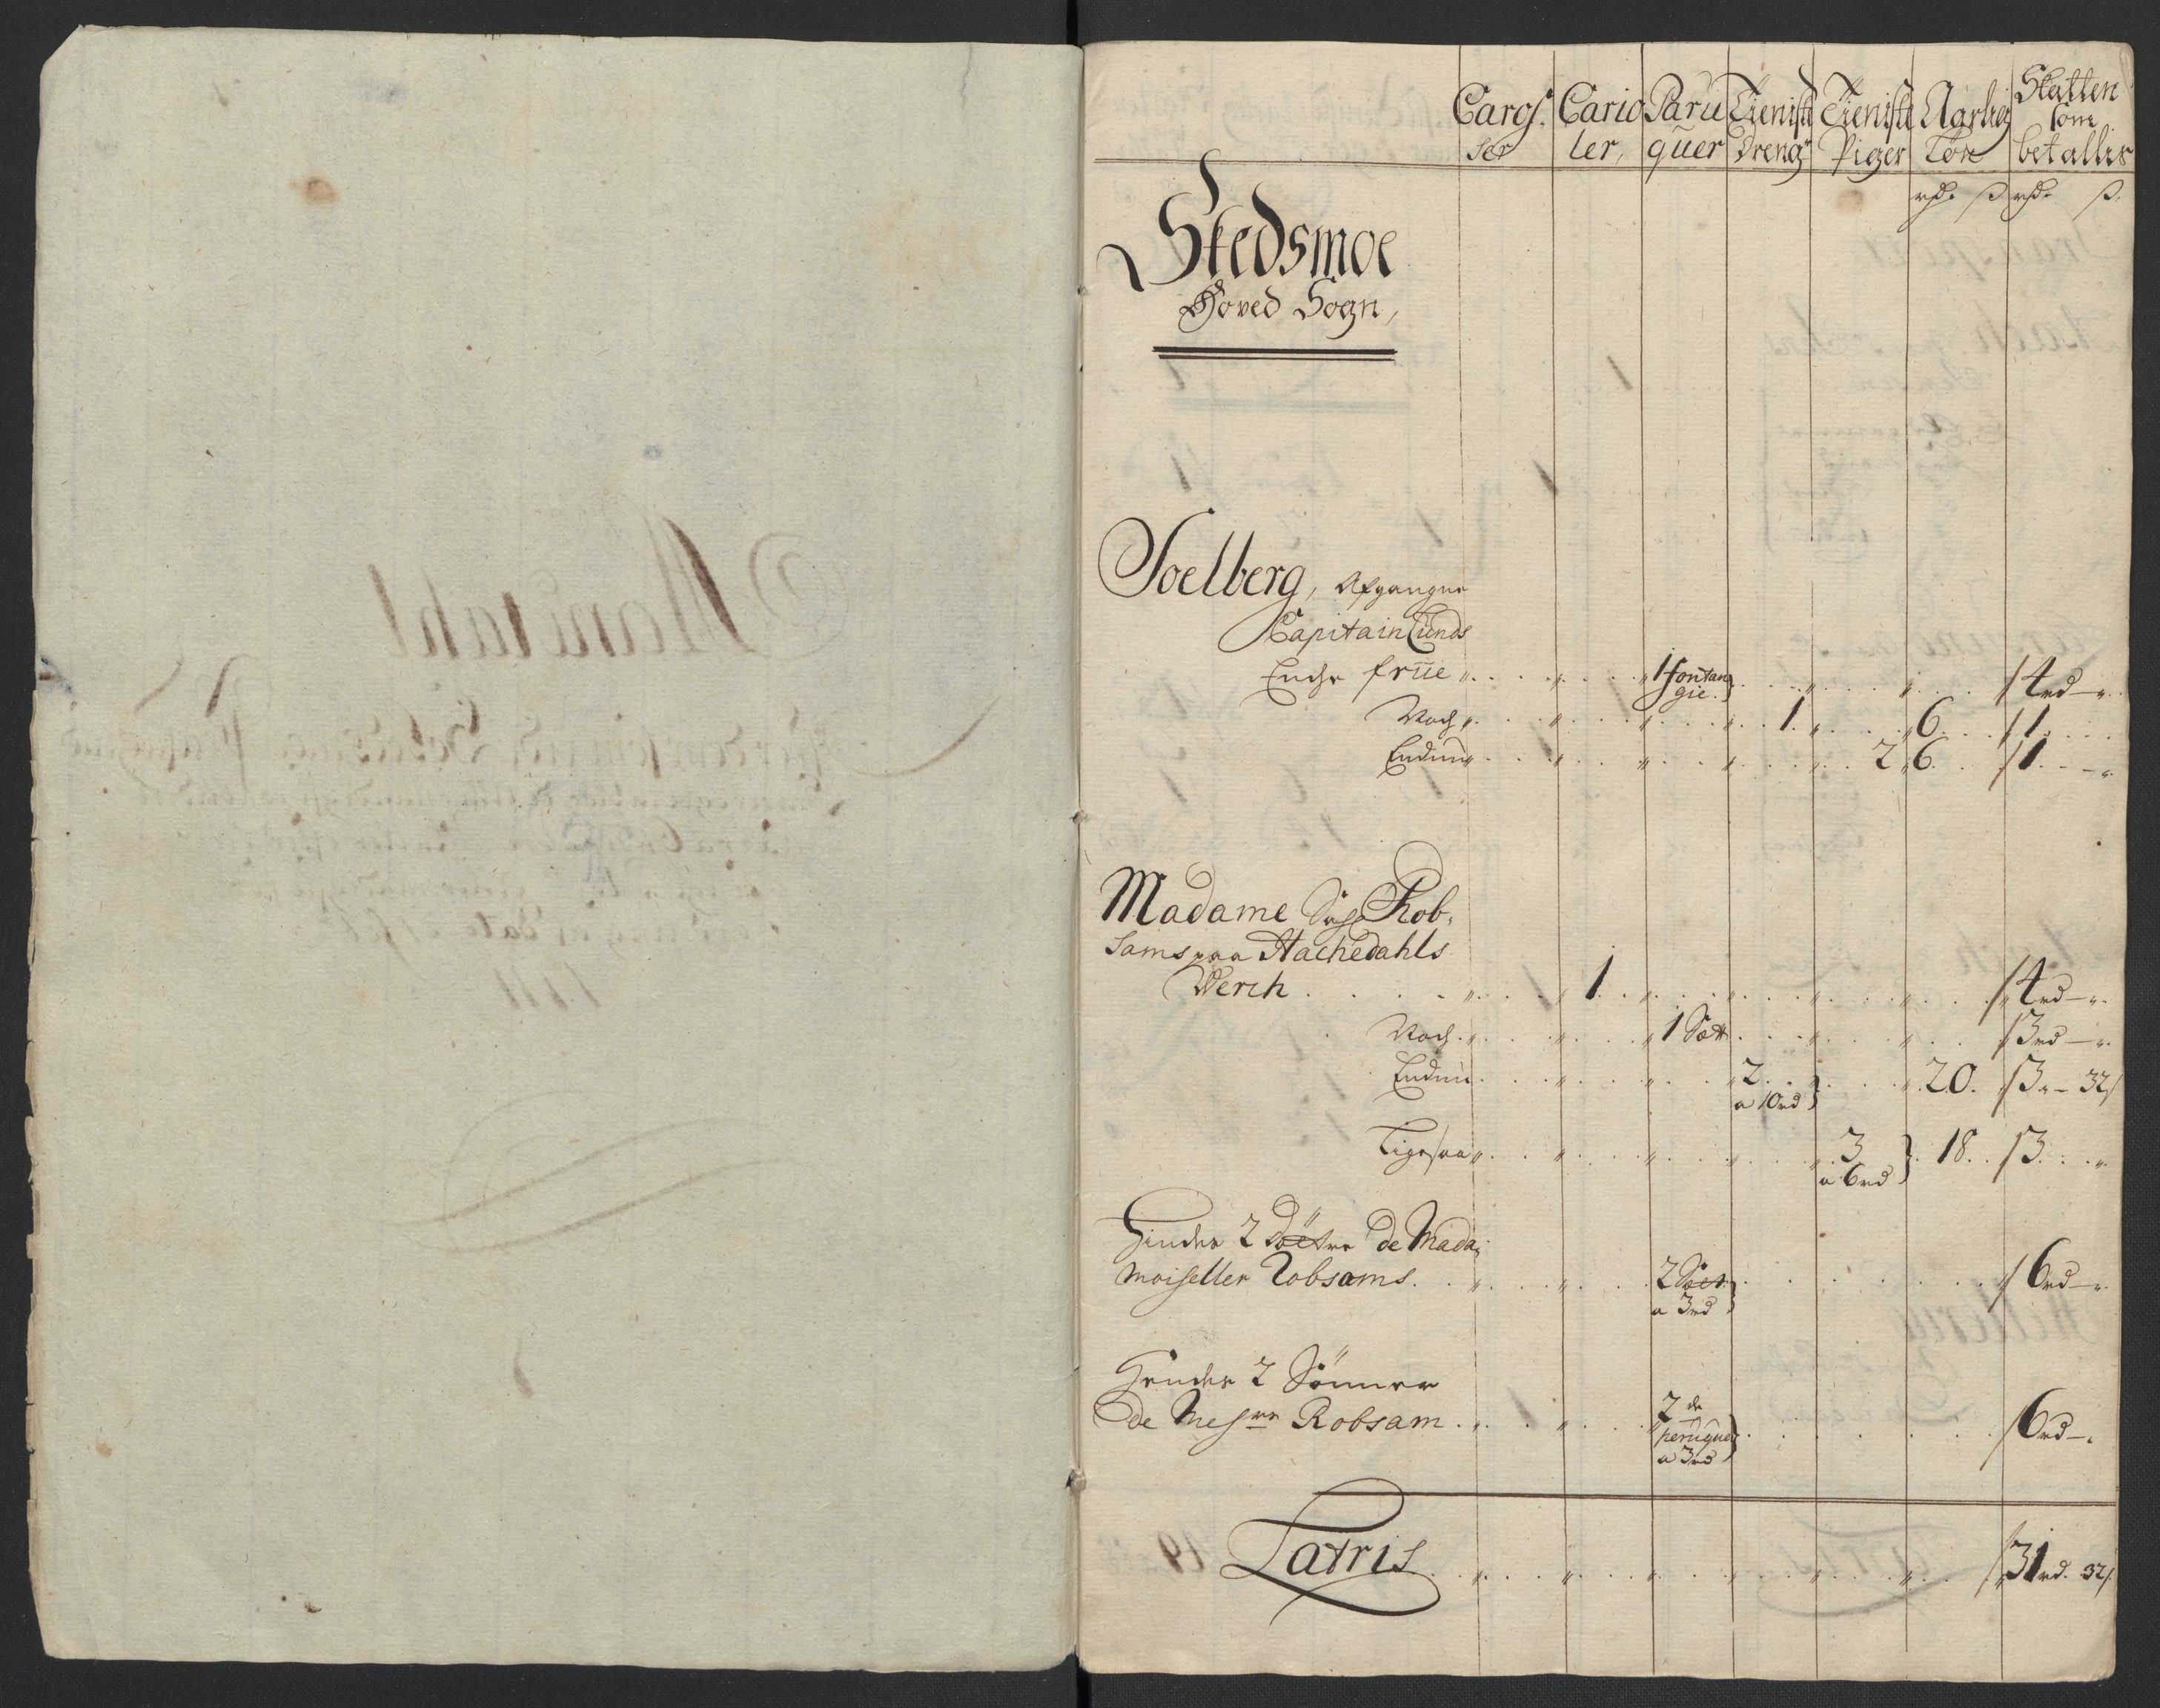 Caros,
ser
Cario
ler,
Paru
quer
Tieniste
Dreng
Tieniste
Piger
Aarlig
Løn
Skatten
som
betallis
rdr ß rdr ß
Skedsmoe
Hoved Sogn,
Soelberg, Afgangne
Capitain Lunds
Enche frue 1 fontan gie. 4 rd
Noch 1 6 1
Endnu 2 6 1
Madame Rob,
sams paa Hachedahls
Werch 1 4 rd
Noch 1 Sæt 3 rd
Endnu 2 a 10 rd 20. 3 32
Ligesaa 3 a 6 rd 18. 3
Hindes 2 Døttre de Mada,
moiseller Robsams 2 Sæt a 3 rd 6 rd
Hendes 2 Sönner
de Messrs Robsam 2 de peruquer a 3 rd 6 rd
Latris 31 rd. 32